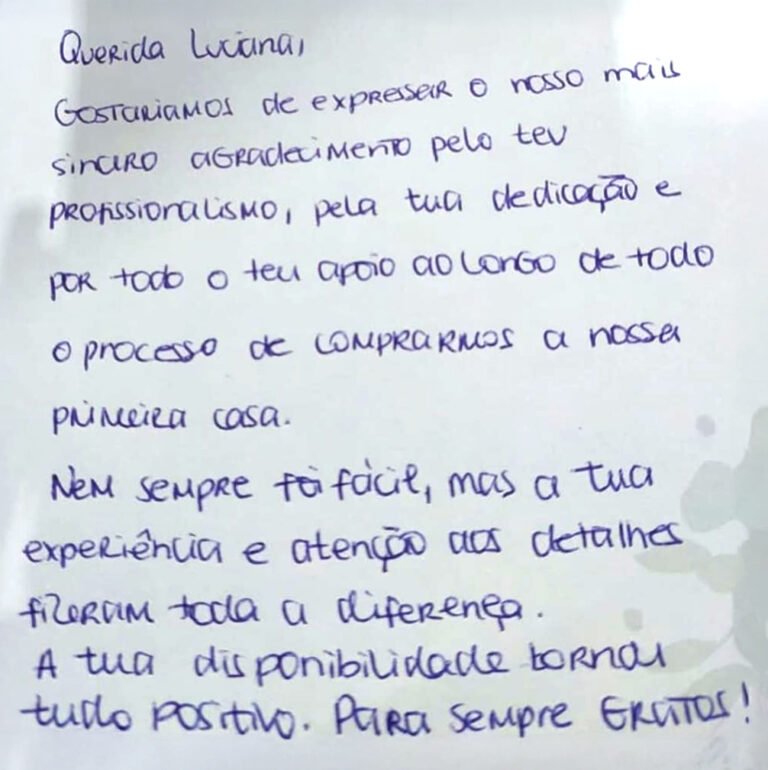 Querida Luciana,
Gostaríamos de expressar o nosso mais
sincero agradecimento pelo teu
profissionalismo, pela tua dedicação e
por todo o teu apoio ao longo de todo
o processo de comprarmos a nossa
primeira casa.
Nem sempre foi fácil, mas a tua
experiência e atenção aos detalhes
fizeram toda a diferença.
A tua disponibilidade tornou
tudo positivo. Para sempre gratos!